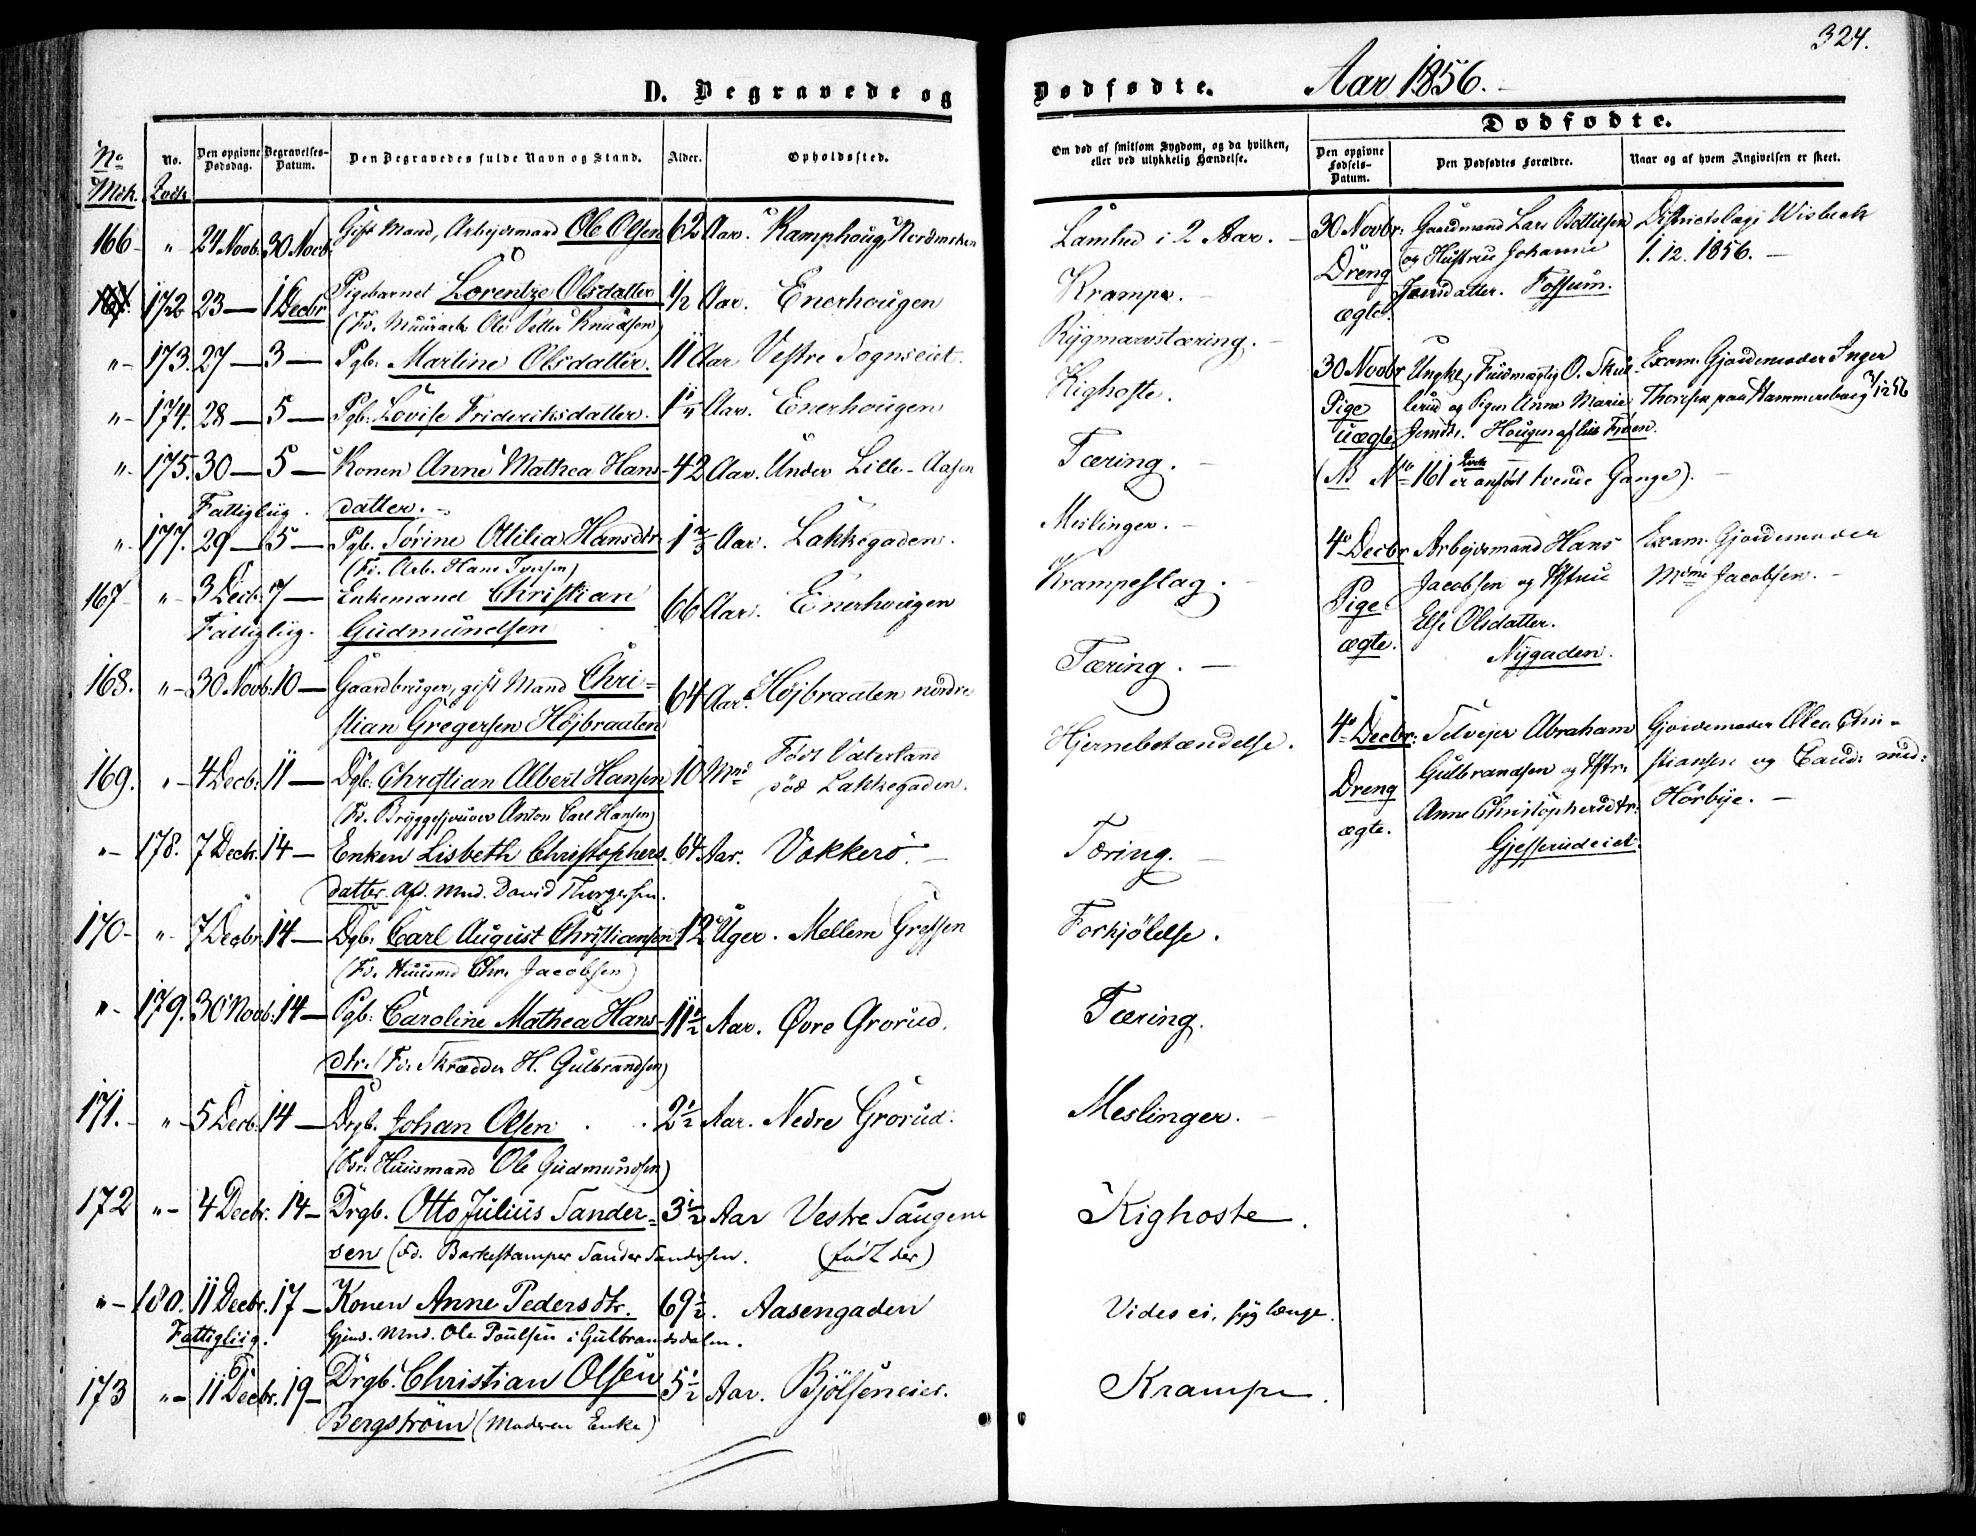 324.
D. Begravede og Dødfødte. Aar 1856.
Dødfødte.
No Mdk. No. Qvdk. Den opgivne Dødsdag. Begravelses-Datum. Den Begravedes fulde Navn og Stand. Alder. Opholdssted.
Om død af smitsom Sygdom, og da hvilken, eller ved ulykkelig Hændelse.
Den opgivne Fødsels-Datum. Den Dødfødtes Forældre. Naar og af hvem Angivelsen er skeet.
166 - " 24 Novb. 30 Novb. Gift Mand, Arbejdsmand Ole Olsen 62 Aar. Kamphoug Nordmarken
172 23 — 1 Decbr Pigebarnet Lorentze Olsdatter 1/2 Aar. Enerhougen
(Fd. Muurarb. Ole Petter Knudsen)
" - 173. 27 — 3 — Pgb. Martine Olsdatter. 11 Aar Vestre Sognseiet.
" - 174. 28 — 5 — Pgb. Lovise Frideriksdatter. Aar. Enerhougen
" - 175. 30 — 5 — Konen Anne Mathea Hans- 42 Aar. Under Lille-Aasen
Fattigliig. datter. -
" - 177. 29 — 5 — Pgb. Sorine Otilia Hansdtr 1 2/3 Aar. Lakkegaden.
(Fd. Arb. Hans Iversen)
167 " - 3 Decb. 7 — Enkemand Christian 66 Aar. Enerhougen
Fattigliig. Gudmundsen
168. " - 30 Novb. 10 — Gaardbruger, gift Mand Chri= 64 Aar. Højbraaten nordre
stian Gregersen Højbraaten
169. " - 4 Decb. 11 — Dgb. Christian Albert Hansen 10 Mnd Født Vaterland
død Lakkegaden.
(Fd. Bryggesjouer Anton Carl Hansen)
" - 178. 7 Decb. 14 — Enken Lisbeth Christophers- 64 Aar. Vækkerø. -
datter. Afd. Mnd. David Thorgersen.
170 - " - 7 Decbr. 14 — Dgb. Carl August Christiansen 12 Uger. Mellem Grefsen
(Fd. Huusmd Chr. Jacobsen)
" - 179. 30 Novb. 14 — Pgb. Caroline Mathea Hans- 11 1/2 Aar. Øvre Grorud.
dtr. (Fd. Skrædder H. Gulbrandsen)
171. " - 5 Decb. 14 — Drgb. Johan Olsen 2 1/2 Aar. Nedre Grorud.
(Fdr. Huusmand Ole Gudmundsen)
172 " - 4 Decbr. 14 - Drgb. Otto Julius Sander- 3 1/2 Aar Vestre Taugene
sen (Fd. Barkestamper Sander Sandersen. (født der)
" - 180. 11 Decbr. 17 - Konen Anne Pedersdtr. 69 1/2. Aasengaden
Fattigliig. Gjens. Mnd. Ole Poulsen i Gulbrandsdalen.
173 " - 11 Decbr. 19 - Drgb. Christian Olsen 5 1/2 Aar. Bjølseneier.
Bergstrøm (Moderen Enke)
Lamhed i 2 Aar. -
Krampe. -
Rygmarvstæring. -
Kighoste.
Tæring. -
Meslinger. -
Krampeslag. -
Tæring. -
Hjernebetændelse.
Tæring. -
Forkjølelse.
Tæring.
Meslinger. -
Kighoste.
Vides ei, syg længe.
Krampe.
30 Novbr. Gaardmand Lars Bottilsen Districtslæge Wisbech
Dreng og Hustru Johanne 1.12.1856. -
ægte. Jansdatter. Fossum.
30 Novbr Ungk., Fuldmægtig O. Skul- Exam. Gjordemoder Inger
Pige lerud og Pigen Anne Marie Thoresen paa Hammersborg
uægte Jensdtr. Hougen af lille Frøen.
(NB No 161 Qvdk er anført tvende Gange). -
4de Decbr Arbejdsmand Hans Exam. Gjordemoder
Pige Jacobsen og Hstru Mdme Jacobsen. -
ægte. Else Olsdatter.
Nygaden.
4de Decbr. Selvejer Abraham Gjordemoder Olea Chri-
Dreng Gulbrandsen og Hstr. stiansen og Cand. med.
ægte. Anne Christophersdtr. Hørbye. -
Gjesserudeiet.